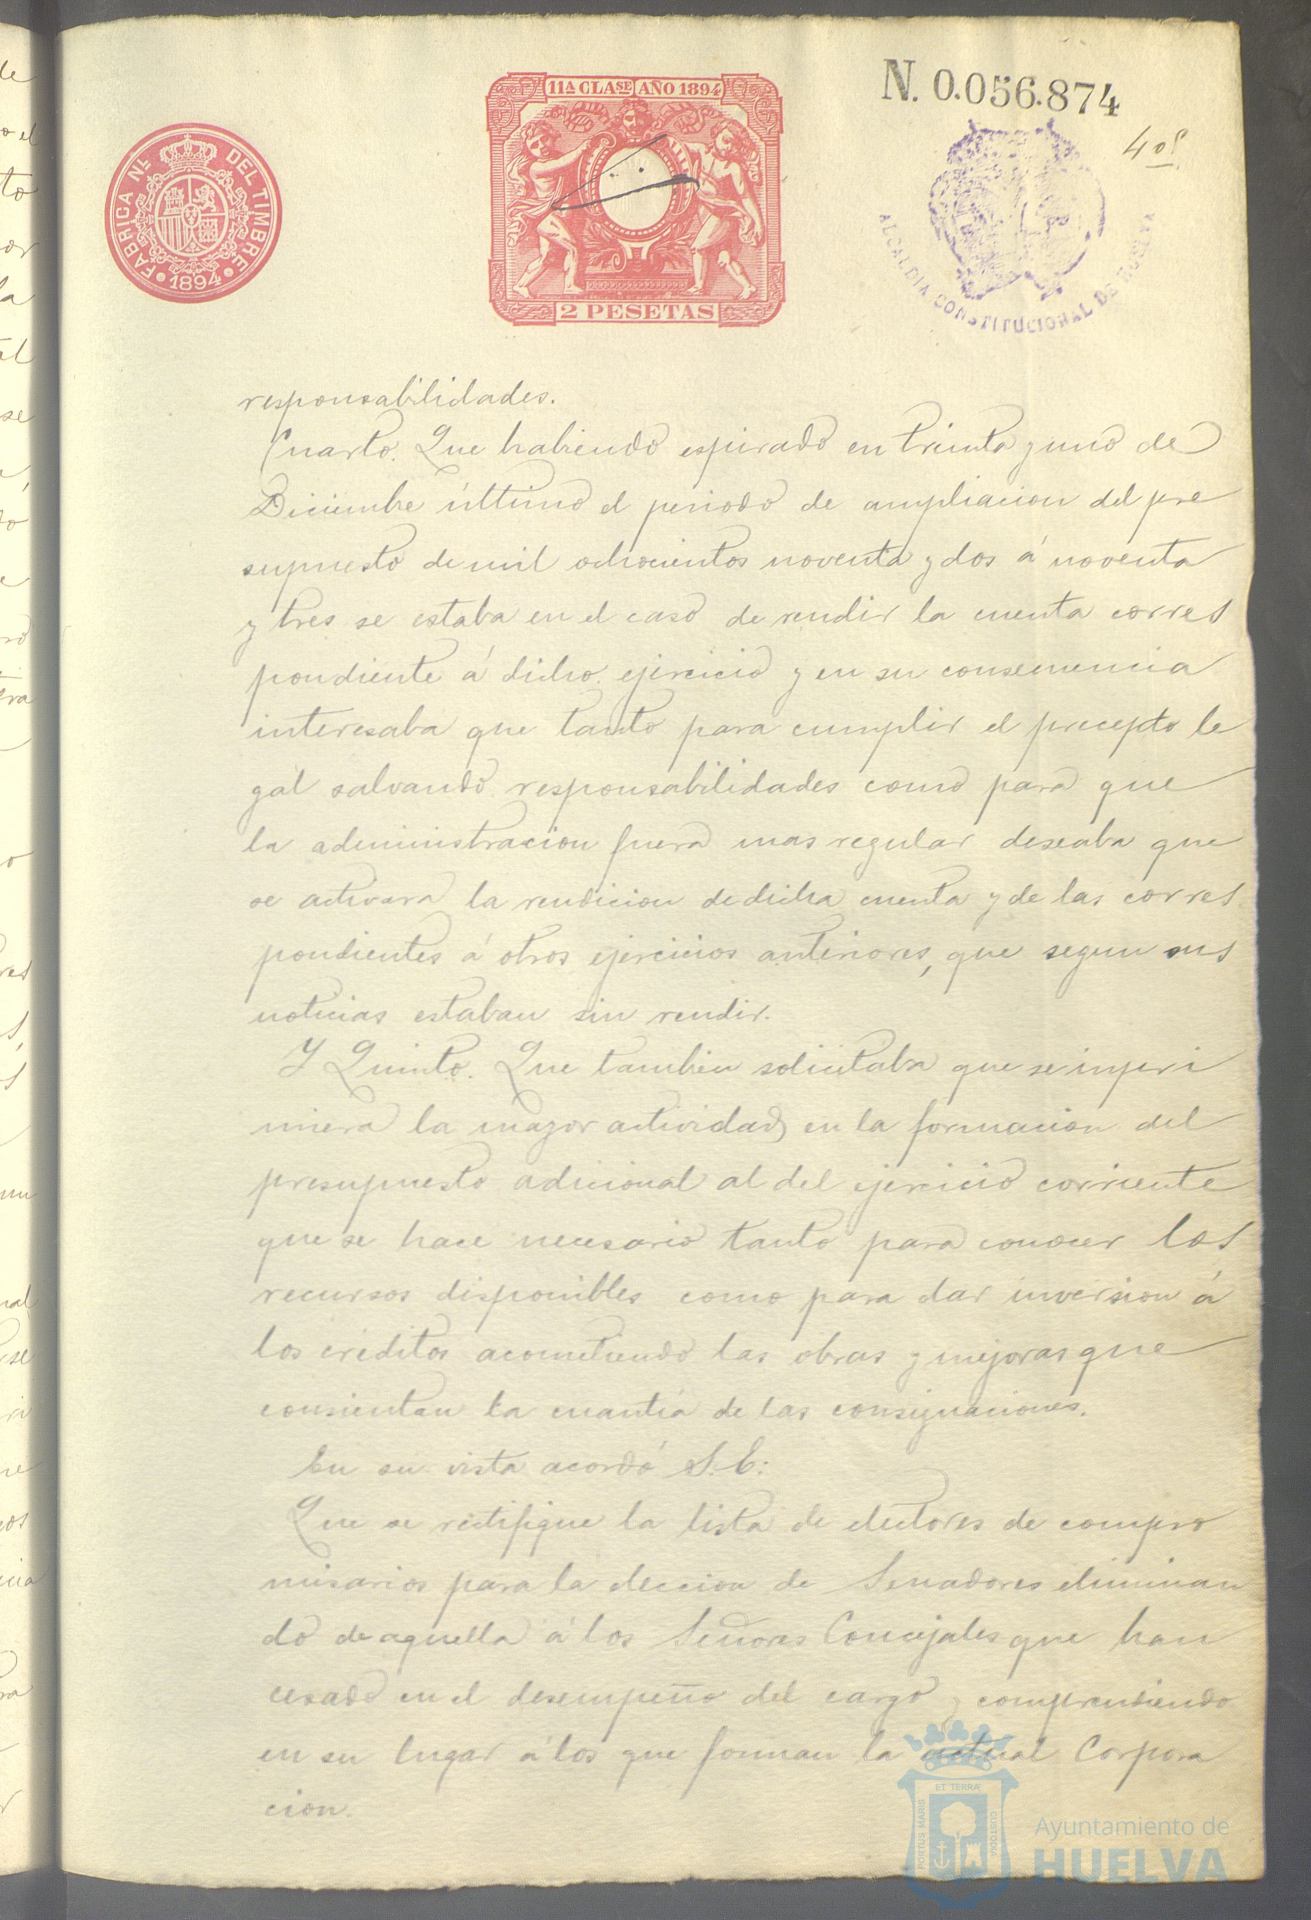 N. 0.056.874
11ª CLASE AÑO 1894
FABRICA NL. DEL TIMBRE
1894
2 PESETAS
ALCALDIA CONSTITUCIONAL DE HUELVA
responsabilidades.
Cuarto. Que habiendo espirado en treinta y uno de
Diciembre último el periodo de ampliacion del pre
supuesto de mil ochocientos noventa y dos á noventa
y tres se estaba en el caso de rendir la cuenta corres
pondiente á dicho ejercicio y en su consecuencia
interesaba que tanto para cumplir el precepto le
gal salvando responsabilidades como para que
la administracion fuera mas regular deseaba que
se activara la rendicion de dicha cuenta y de las corres
pondientes á otros ejercicios anteriores, que segun sus
noticias estaban sin rendir.
Y Quinto. Que tambien solicitaba que se inpri
miera la mayor actividad en la formacion del
presupuesto adicional al del ejercicio corriente
que se hace necesario tanto para conocer los
recursos disponibles como para dar inversion á
los creditos acometiendo las obras y mejoras que
consientan la cuantía de las consignaciones.
En su vista acordó S. E:
Que se rectifique la lista de electores de compro
misarios para la eleccion de Senadores eliminan
do de aquella á los Señores Concejales que han
cesado en el desempeño del cargo y comprendiendo
en su lugar á los que forman la actual Corpora
cion.
PORTUS MARIS ET TERRÆ CUSTODIA
Ayuntamiento de
HUELVA